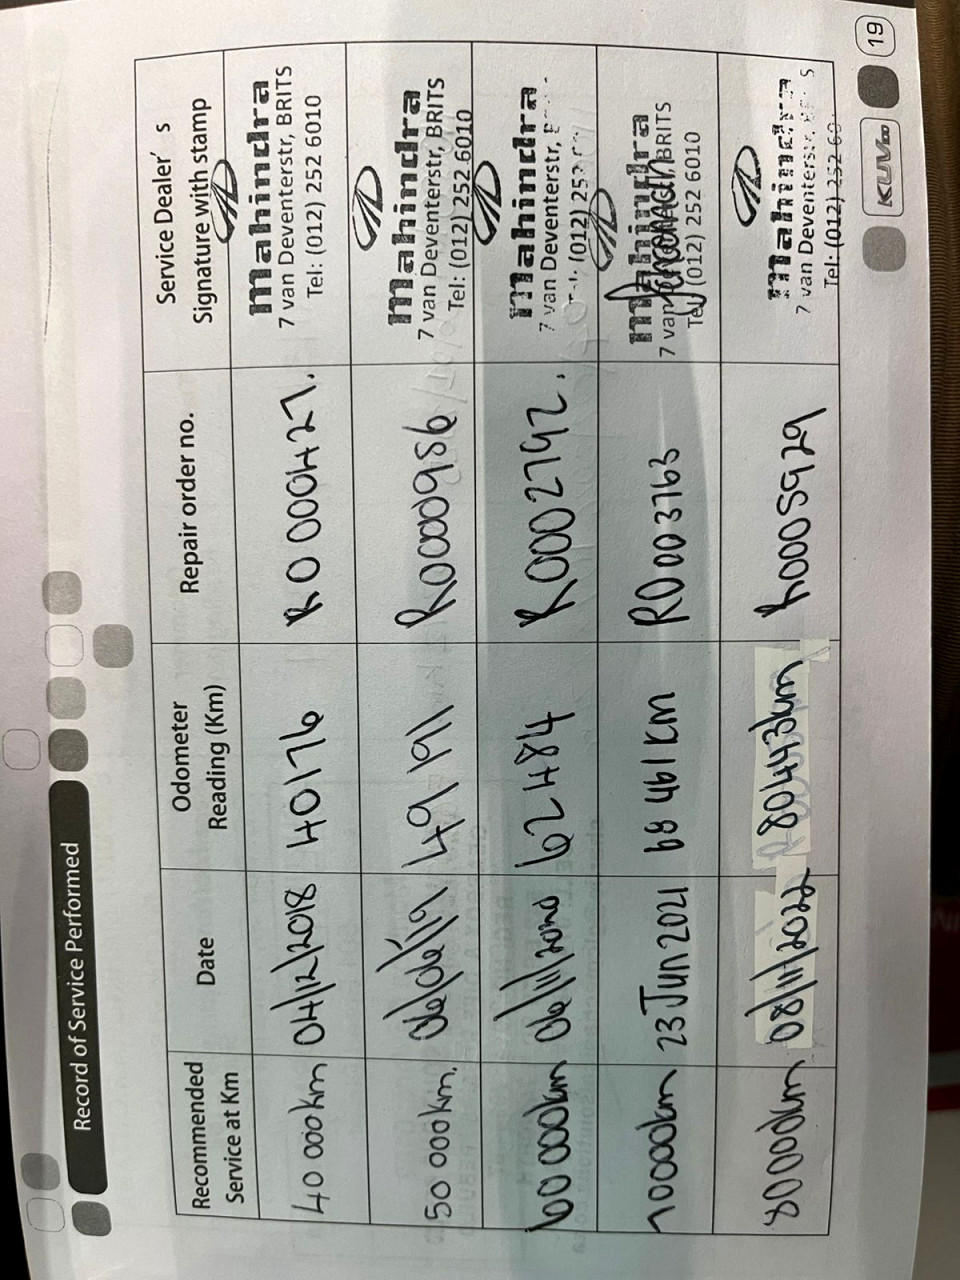 Record of Service Performed
Recommended Service at Km
Date
Odometer Reading (Km)
Repair order no.
Service Dealer's Signature with stamp
40 000km
04/12/2018
40176
RO 000427.
mahindra
7 van Deventerstr, BRITS
Tel: (012) 252 6010
50 000km.
06/06/19
49191
RO000986
mahindra
7 van Deventerstr, BRITS
Tel: (012) 252 6010
60 000km
06/11/2020
62484
R0002792.
mahindra
7 van Deventerstr,
(012) 252
70000km
23 Jun 2021
68 461 KM
RO003763
mahindra
7 van BRITS
Tel: (012) 252 6010
80000km
08/11/2022
80443km
R0005929
mahindra
7 van Deventerstr,
Tel: (012) 252 60
KUV100
19